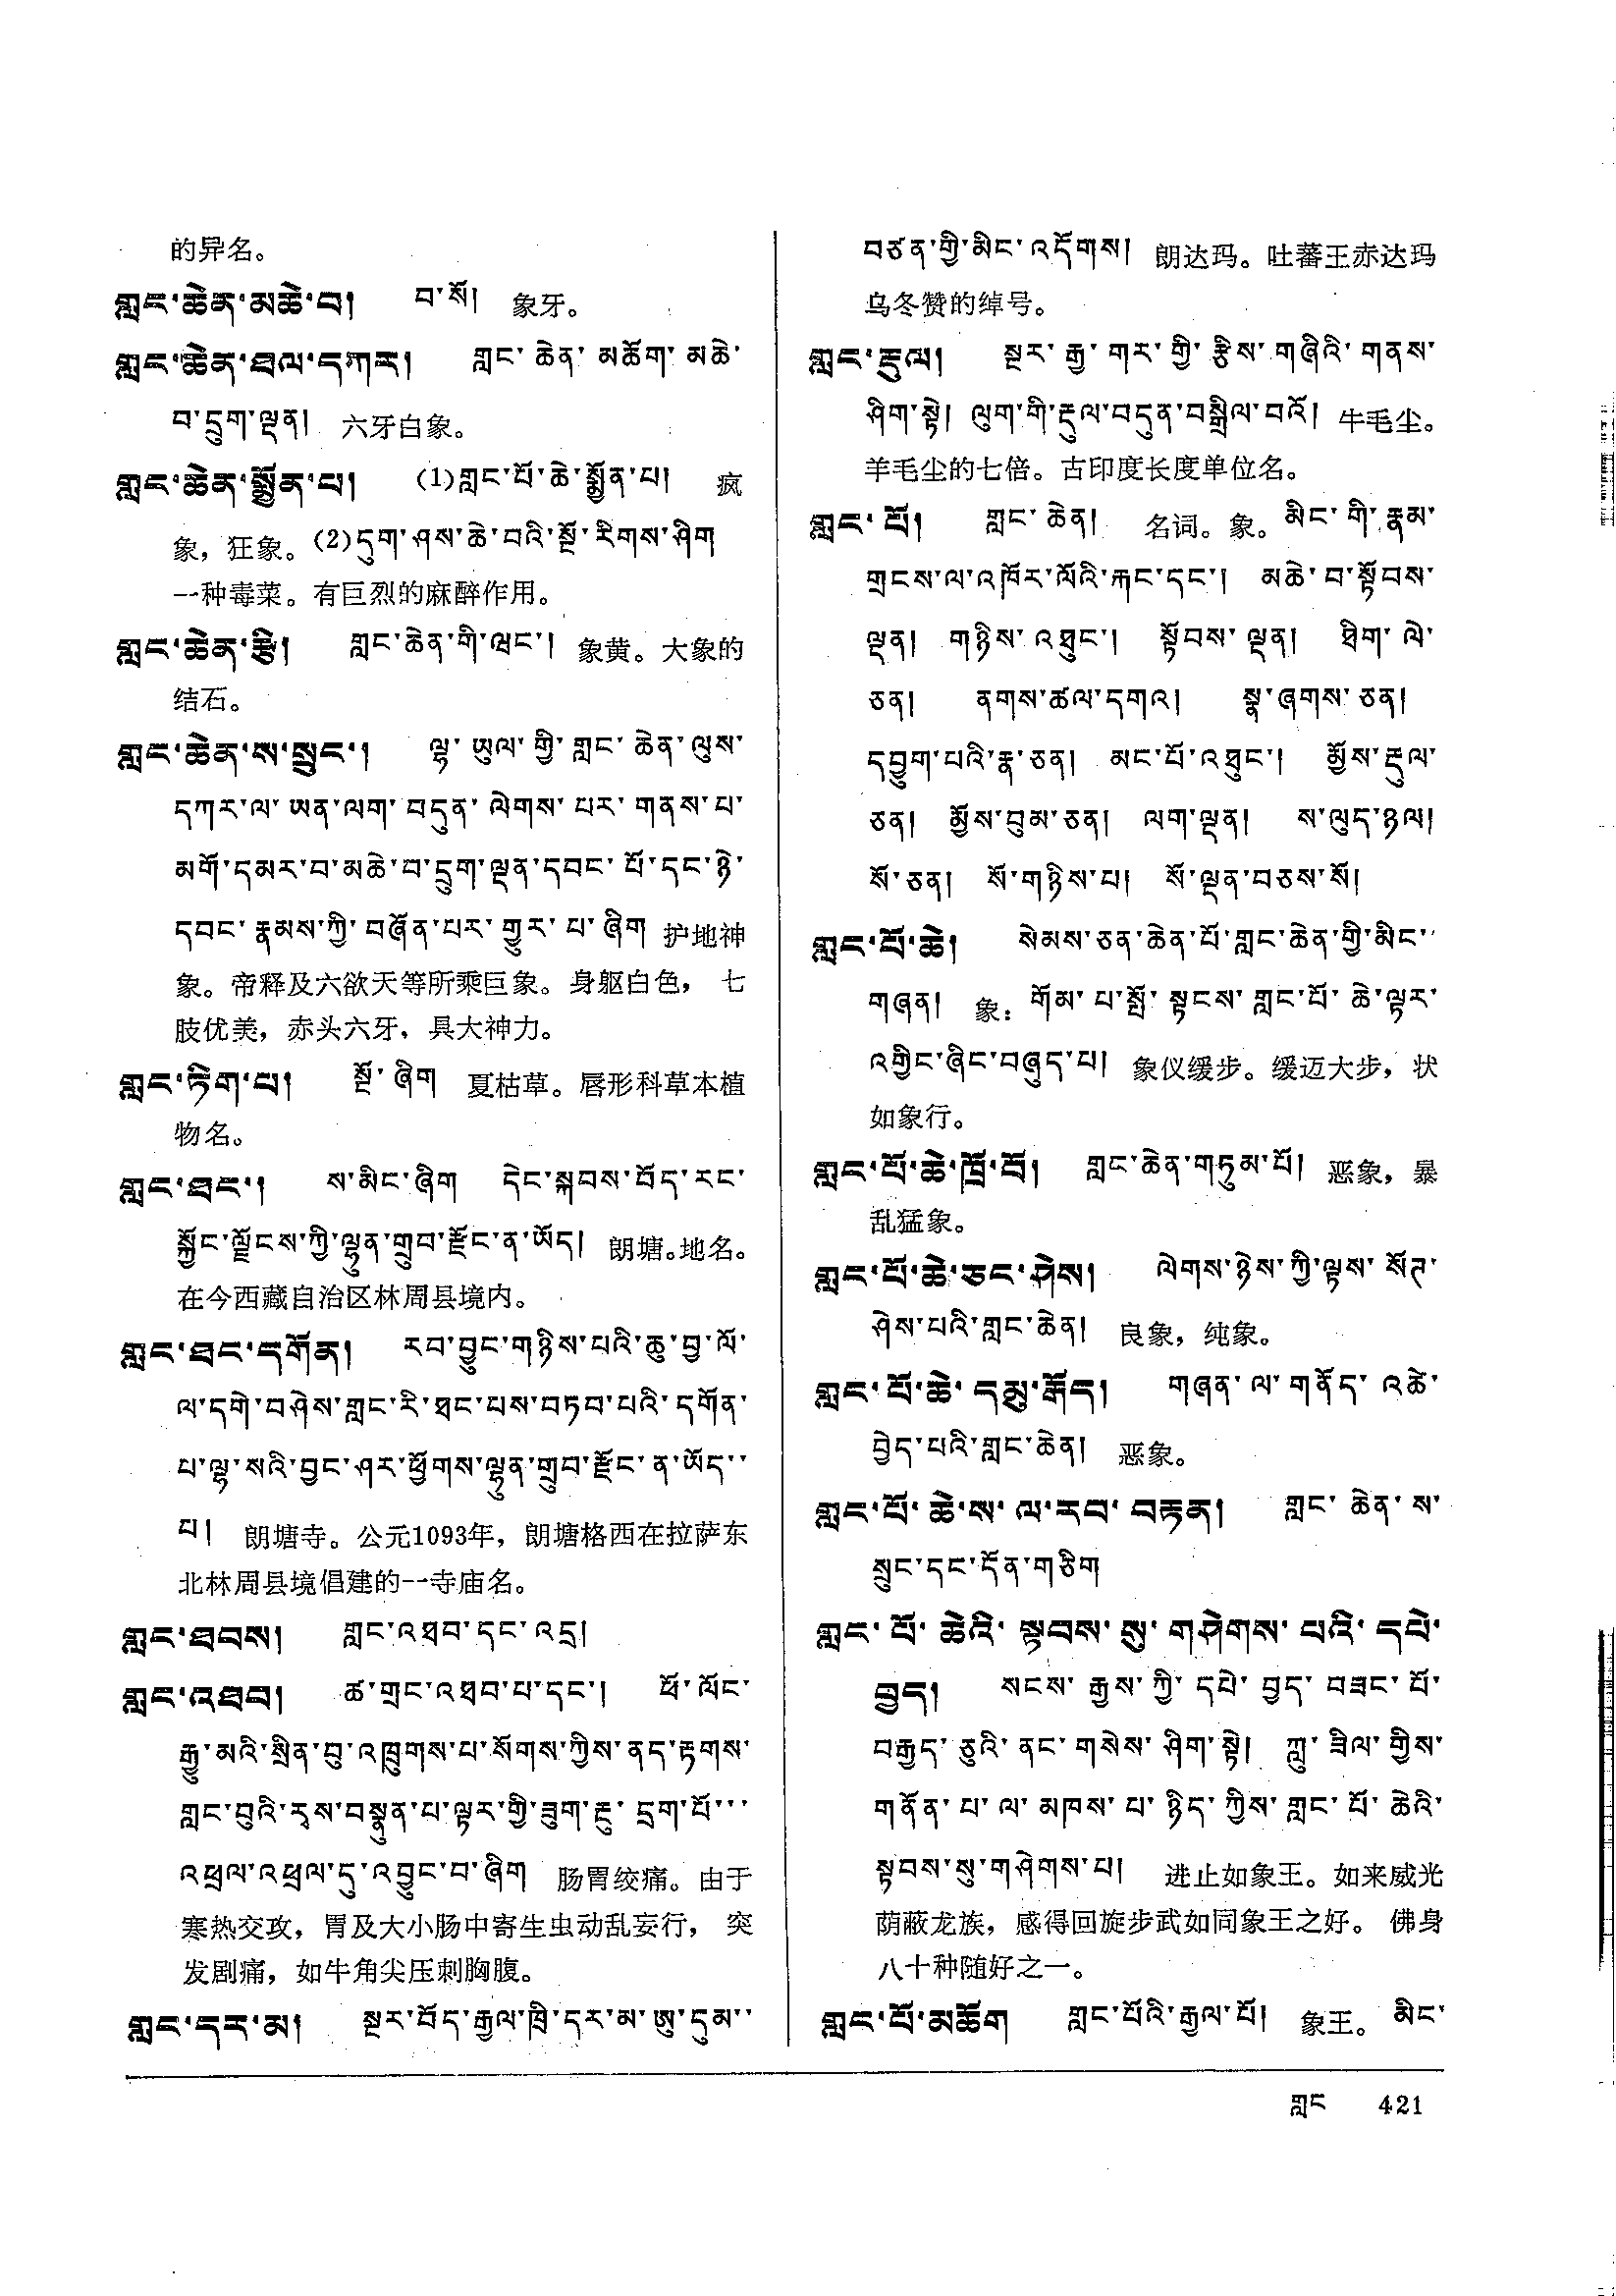 的异名。
གླང་ཆེན་མཆེ་བ། བ་སོ། 象牙。
གླང་ཆེན་ཐལ་དཀར། གླང་ཆེན་མཆོག་མཆེ་
བ་དྲུག་ལྡན། 六牙白象。
གླང་ཆེན་སྨྱོན་པ། (1)གླང་པོ་ཆེ་སྨྱོན་པ། 疯
象，狂象。(2)དུག་ཤས་ཆེ་བའི་སྔོ་རིགས་ཤིག
一种毒菜。有巨烈的麻醉作用。
གླང་ཆེན་རྩི། གླང་ཆེན་གི་ཝང་། 象黄。大象的
结石。
གླང་ཆེན་ས་སྲུང་། ལྷ་ཡུལ་གྱི་གླང་ཆེན་ལུས་
དཀར་ལ་ཡན་ལག་བདུན་ལེགས་པར་གནས་པ་
མགོ་དམར་བ་མཆེ་བ་དྲུག་ལྡན་དབང་པོ་དང་ཉེ་
དབང་རྣམས་ཀྱི་བཞོན་པར་གྱུར་པ་ཞིག 护地神
象。帝释及六欲天等所乘巨象。身躯白色，七
肢优美，赤头六牙，具大神力。
གླང་ཏིག་པ། སྔོ་ཞིག 夏枯草。唇形科草本植
物名。
གླང་ཐང་། ས་མིང་ཞིག དེང་སྐབས་བོད་རང་
སྐྱོང་ལྗོངས་ཀྱི་ལྷུན་གྲུབ་རྫོང་ན་ཡོད། 朗塘。地名。
在今西藏自治区林周县境内。
གླང་ཐང་དགོན། རབ་བྱུང་གཉིས་པའི་ཆུ་བྱ་ལོ་
ལ་དགེ་བཤེས་གླང་རི་ཐང་པས་བཏབ་པའི་དགོན་
པ་ལྷ་སའི་བྱང་ཤར་ཕྱོགས་ལྷུན་གྲུབ་རྫོང་ན་ཡོད་་
པ། 朗塘寺。公元1093年，朗塘格西在拉萨东
北林周县境倡建的一寺庙名。
གླང་ཐབས། གླང་འཐབ་དང་འདྲ།
གླང་འཐབ། ཚ་གྲང་འཐབ་པ་དང་། ཕོ་ལོང་
རྒྱུ་མའི་སྲིན་བུ་འཁྲུགས་པ་སོགས་ཀྱིས་ནད་རྟགས་
གླང་བུའི་རྭས་བསྣུན་པ་ལྟར་གྱི་ཟུག་རྔུ་དྲག་པོ་་་
འཕྲལ་འཕྲལ་དུ་འབྱུང་བ་ཞིག 肠胃绞痛。由于
寒热交攻，胃及大小肠中寄生虫动乱妄行，突
发剧痛，如牛角尖压刺胸腹。
གླང་དར་མ། སྔར་བོད་རྒྱལ་ཁྲི་དར་མ་ཨུ་དུམ་་
བཙན་གྱི་མིང་འདོགས། 朗达玛。吐蕃王赤达玛
乌冬赞的绰号。
གླང་རྡུལ། སྔར་རྒྱ་གར་གྱི་རྩིས་གཞིའི་གནས་
ཤིག་སྟེ། ལུག་གི་རྡུལ་བདུན་བསྒྲིལ་བའོ། 牛毛尘。
羊毛尘的七倍。古印度长度单位名。
གླང་པོ། གླང་ཆེན། 名词。象。མིང་གི་རྣམ་
གྲངས་ལ་འཁོར་ལོའི་རྐང་དང་། མཆེ་བ་སྟོབས་
ལྡན། གཉིས་འཐུང་། སྟོབས་ལྡན། ཐིག་ལེ་
ཅན། ནགས་ཚལ་དགའ། སྣ་ཞགས་ཅན།
དབྱུག་པའི་རྣ་ཅན། མང་པོ་འཐུང་། མྱོས་རྡུལ་
ཅན། མྱོས་བུམ་ཅན། ལག་ལྡན། ས་ལུད་ཉལ།
སོ་ཅན། སོ་གཉིས་པ། སོ་ལྡན་བཅས་སོ།
གླང་པོ་ཆེ། སེམས་ཅན་ཆེན་པོ་གླང་ཆེན་གྱི་མིང་
གཞན། 象：གོམ་པ་སྤོ་སྟངས་གླང་པོ་ཆེ་ལྟར་
འགྱིང་ཞིང་བཞུད་པ། 象仪缓步。缓迈大步，状
如象行。
གླང་པོ་ཆེ་ཁྲོ་བོ། གླང་ཆེན་གཏུམ་པོ། 恶象，暴
乱猛象。
གླང་པོ་ཆེ་ཅང་ཤེས། ལེགས་ཉེས་ཀྱི་ལྟས་སོཊ་
ཤེས་པའི་གླང་ཆེན། 良象，纯象。
གླང་པོ་ཆེ་དམུ་རྒོད། གཞན་ལ་གནོད་འཚེ་
བྱེད་པའི་གླང་ཆེན། 恶象。
གླང་པོ་ཆེ་ས་ལ་རབ་བརྟན། གླང་ཆེན་ས་
སྲུང་དང་དོན་གཅིག
གླང་པོ་ཆེའི་སྟབས་སུ་གཤེགས་པའི་དཔེ་
བྱད། སངས་རྒྱས་ཀྱི་དཔེ་བྱད་བཟང་པོ་
བརྒྱད་ཅུའི་ནང་གསེས་ཤིག་སྟེ། ཀླུ་ཟིལ་གྱིས་
གནོན་པ་ལ་མཁས་པ་ཉིད་ཀྱིས་གླང་པོ་ཆེའི་
སྟབས་སུ་གཤེགས་པ། 进止如象王。如来威光
荫蔽龙族，感得回旋步武如同象王之好。佛身
八十种随好之一。
གླང་པོ་མཆོག གླང་པོའི་རྒྱལ་པོ། 象王。མིང་
གླང 421